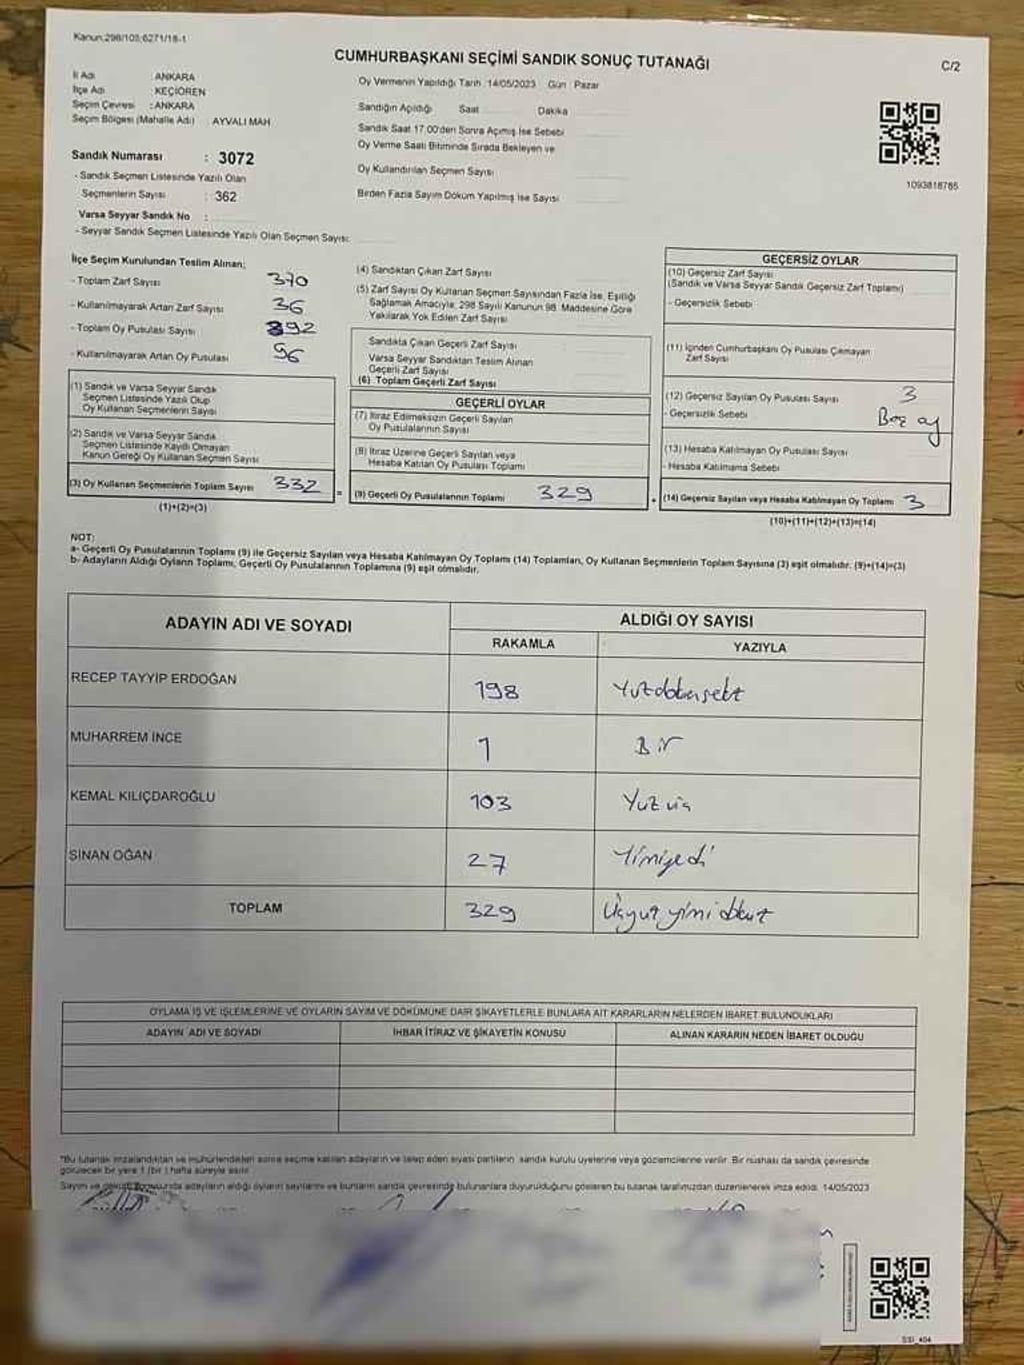 Kanun:298/105;6271/18-1
CUMHURBAŞKANI SEÇİMİ SANDIK SONUÇ TUTANAĞI
C/2
İl Adı ANKARA
İlçe Adı KEÇİÖREN
Seçim Çevresi : ANKARA
Seçim Bölgesi (Mahalle Adı) : AYVALI MAH
Sandık Numarası : 3072
- Sandık Seçmen Listesinde Yazılı Olan
Seçmenlerin Sayısı : 362
Varsa Seyyar Sandık No :
- Seyyar Sandık Seçmen Listesinde Yazılı Olan Seçmen Sayısı:
Oy Vermenin Yapıldığı Tarih :14/05/2023 Gün : Pazar
Sandığın Açıldığı Saat Dakika
Sandık Saat 17.00'den Sonra Açımış İse Sebebi
Oy Verme Saati Bitiminde Sırada Bekleyen ve
Oy Kullandırılan Seçmen Sayısı
Birden Fazla Sayım Döküm Yapılmış İse Sayısı
1093818785
İlçe Seçim Kurulundan Teslim Alınan;
- Toplam Zarf Sayısı 370
- Kullanılmayarak Artan Zarf Sayısı 36
- Toplam Oy Pusulası Sayısı 392
- Kullanılmayarak Artan Oy Pusulası 56
(1) Sandık ve Varsa Seyyar Sandık
Seçmen Listesinde Yazılı Olup
Oy Kullanan Seçmenlerin Sayısı
(2) Sandık ve Varsa Seyyar Sandık
Seçmen Listesinde Kayıtlı Olmayan
Kanun Gereği Oy Kullanan Seçmen Sayısı
(3) Oy Kullanan Seçmenlerin Toplam Sayısı 332 =
(1)+(2)=(3)
(4) Sandıktan Çıkan Zarf Sayısı
(5) Zarf Sayısı Oy Kullanan Seçmen Sayısından Fazla İse, Eşitliği
Sağlamak Amacıyla, 298 Sayılı Kanunun 98. Maddesine Göre
Yakılarak Yok Edilen Zarf Sayısı
Sandıkta Çıkan Geçerli Zarf Sayısı
Varsa Seyyar Sandıktan Teslim Alınan
Geçerli Zarf Sayısı
(6) Toplam Geçerli Zarf Sayısı
GEÇERLİ OYLAR
(7) İtiraz Edilmeksizin Geçerli Sayılan
Oy Pusulalarının Sayısı
(8) İtiraz Üzerine Geçerli Sayılan veya
Hesaba Katılan Oy Pusulası Toplamı
(9) Geçerli Oy Pusulalarının Toplamı 329 +
GEÇERSİZ OYLAR
(10) Geçersiz Zarf Sayısı
(Sandık ve Varsa Seyyar Sandık Geçersiz Zarf Toplamı)
- Geçersizlik Sebebi
(11) İçinden Cumhurbaşkanı Oy Pusulası Çıkmayan
Zarf Sayısı
(12) Geçersiz Sayılan Oy Pusulası Sayısı 3
- Geçersizlik Sebebi Boş oy
(13) Hesaba Katılmayan Oy Pusulası Sayısı
- Hesaba Katılmama Sebebi
(14) Geçersiz Sayılan veya Hesaba Katılmayan Oy Toplamı 3
(10)+(11)+(12)+(13)=(14)
NOT:
a- Geçerli Oy Pusulalarının Toplamı (9) ile Geçersiz Sayılan veya Hesaba Katılmayan Oy Toplamı (14) Toplamları, Oy Kullanan Seçmenlerin Toplam Sayısına (3) eşit olmalıdır. (9)+(14)=(3)
b- Adayların Aldığı Oyların Toplamı, Geçerli Oy Pusulalarının Toplamına (9) eşit olmalıdır.
ADAYIN ADI VE SOYADI
ALDIĞI OY SAYISI
RAKAMLA YAZIYLA
RECEP TAYYİP ERDOĞAN 198 Yüzdoksansekiz
MUHARREM İNCE 1 Bir
KEMAL KILIÇDAROĞLU 103 Yüz üç
SİNAN OĞAN 27 Yirmiyedi
TOPLAM 329 Üçyüz yirmi dokuz
OYLAMA İŞ VE İŞLEMLERİNE VE OYLARIN SAYIM VE DÖKÜMÜNE DAİR ŞİKAYETLERLE BUNLARA AİT KARARLARIN NELERDEN İBARET BULUNDUKLARI
ADAYIN ADI VE SOYADI İHBAR İTİRAZ VE ŞİKAYETİN KONUSU ALINAN KARARIN NEDEN İBARET OLDUĞU
*Bu tutanak imzalandıktan ve mühürlendikten sonra seçime katılan adayların ve talep eden siyasi partilerin sandık kurulu üyelerine veya gözlemcilerine verilir. Bir nüshası da sandık çevresinde
görülecek bir yere 1 (bir) hafta süreyle asılır.
Sayım ve döküm sonucunda adayların aldığı oyların sayılarını ve bunların sandık çevresinde bulunanlara duyurulduğunu gösteren bu tutanak tarafımızdan düzenlenerek imza edildi. 14/05/2023
SSI_404